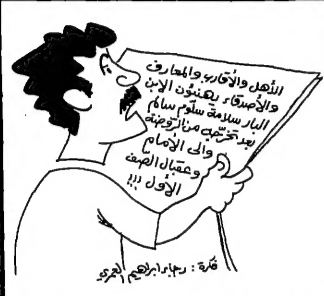 الأهل والأقارب والمعارف
والأصدقاء يهنئون الابن
البار سلامة سلوم سالم
بعد تخرّجه من الروضة
والى الأمام
وعقبال الصف
الأول !!!
فكرة : رجاء ابراهيم العمري